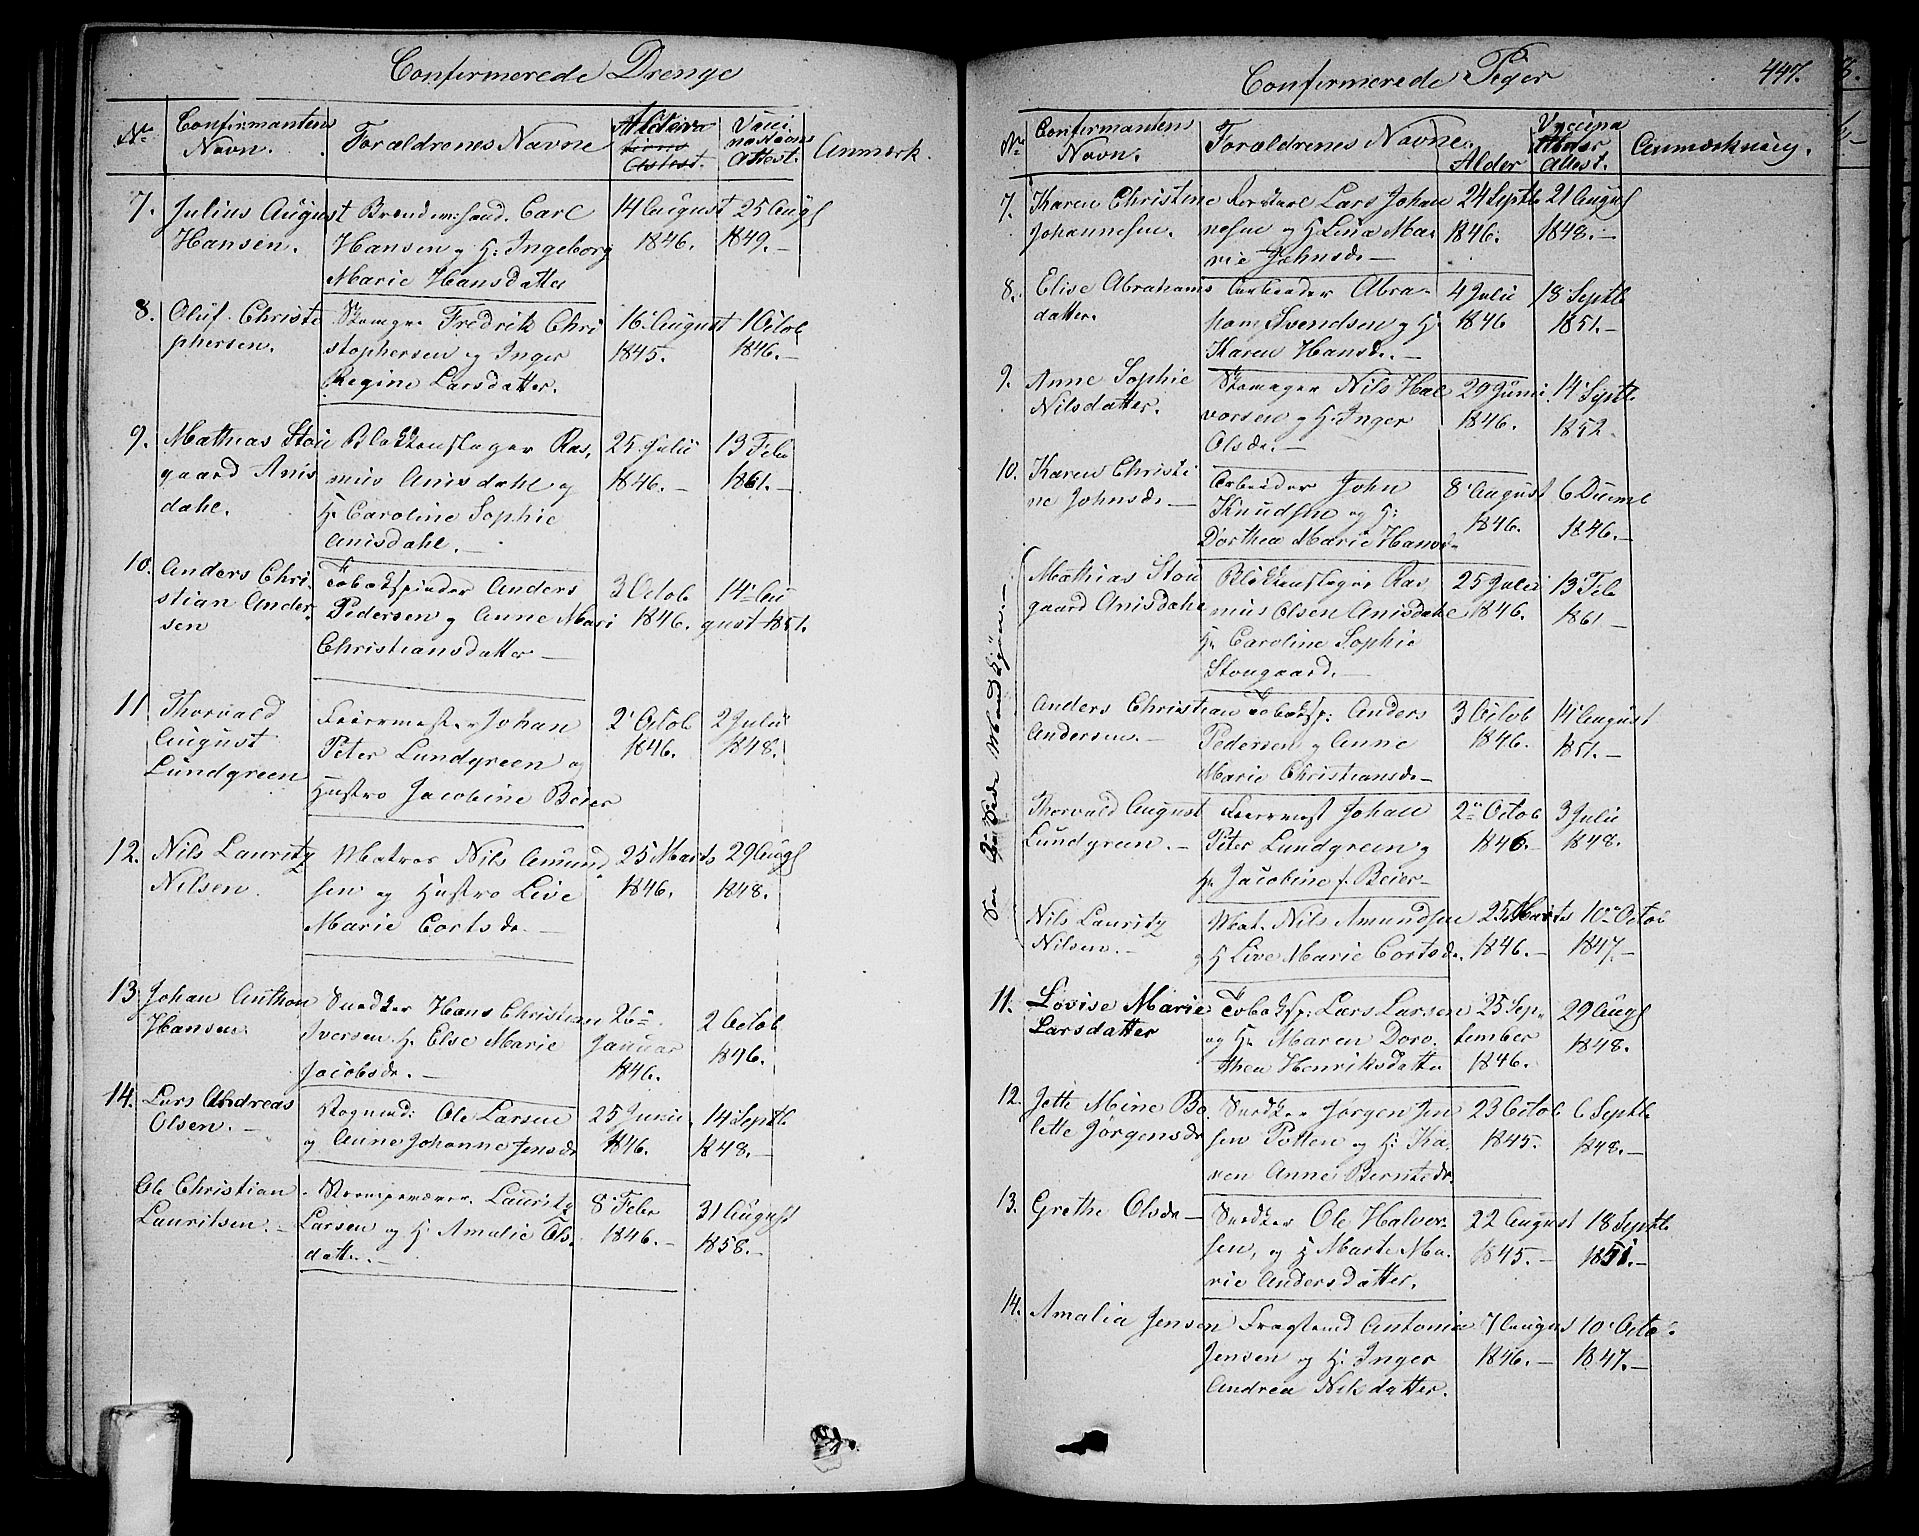 Confirmerede Drenge
No
Confirmantens Navn.
Forældrenes Navne
Vacci nations Attest.
Anmærk.
7. Julius August Hansen.
Carl
Hansen og H: Ingeborg
Marie Hansdatter
14 August 1846.
25 Augst 1849.—
8. Oluf Christo
phersen.
Skomager Fredrik Chri
stophersen og Inger
Regine Larsdatter.
16 August 1845.
1 Octob 1846.—
9. Mathias Stou
gaard Anis
dahl.
Blokkenslager Ras,
mus Anisdahl og
H. Caroline Sophie
Anisdahl.—
25 Julii 1846.—
13 Feb 1861.—
10. Anders Chri
stian Ander
sen
Tobakspinder Anders
Pedersen og Anne Mari
Christiansdatter—
3 Octob 1846.
14 Au
gust 1851.
11 Thorvald
August
Lundgreen
Feiermester Johan
Peter Lundgreen og
Hustro Jacobine Beier
2 Octob 1846.
2 Julii 1848.
12. Nils Lauritz
Nilsen.
Matros Nils Amund,
sen og Hustro Live
Marie Cortsdr.—
25 Marts 1846.
29 Augst 1848.
13 Johan Anthon
Hansen
Snedker Hans Christian
Iversen H. Else Marie
Jacobsdr.—
26
Januar
1846.
2 Octob
1846.
14. Lars Andreas
Olsen.—
Ole Larsen
og Anne Johanne Jensdr
25 Junii 1846.
14 Septb 1848.—
Ole Christian
Lauritsen.—
Lauritz
Larsen og H. Amalie Ols
datter.—
8 Febr 1846.—
31 August 1858.—
Confirmerede Piger
447.
No
Confirmantens Navn.
Forældrenes Navne.
Alder
Vaccina Attest.
Anmærkning.
7. Karen Christine
Johannesen.
Lars Johan
nesen og H Lina Ma
rie Johnsdr—
24 Septb 1846.
21 Augst 1848.—
8. Elise Abrahams
datter.
Arbeider Abra
ham Svendsen og H.
Karen Hansdr.—
4 Julii 1846
18 Septb 1851.—
9. Anne Sophie
Nilsdatter.
Skomager Nils Hal
vorsen og H. Inger
Olsdr.—
29 Junii 1846.
14 Septb 1852.
10. Karen Christi
ne Johnsdr—
Arbeider John
Knudsen og H:
Dorthea Marie Hansdr
8 August 1846.
6 Decemb 1846.—
Mathias Stou
gaard Anisdahl
Blokkenslager Ras
mus Olsen Anisdahl
H. Caroline Sophie
Stougaard.—
25 Julii 1846.
13 Feb 1861—
Anders Christian
Andersen.—
Tobaksp: Anders
Pedersen og Anne
Marie Christiansdr—
3 Octob 1846.
14 August 1851.—
Thorvald August
Lundgreen.—
Feiermest Johan
Peter Lundgreen og
H. Jacobine f. Beier—
2 Octob 1846.—
3 Julii 1848.
Nils Lauritz
Nilsen.—
Mat. Nils Amundsen
og H Live Marie Cortsdr.
25 Marts 1846.—
10 Octob 1847.—
11. Lovise Marie
Larsdatter
Tobaksp: Lars Larsen
og H. Maren Doro,
thea Henriksdatter
25 Sep
tember
1846.
29 Augst 1848.
12. Jette Mine Bo
lette Jørgensdr
Snedker Jørgen Jen
sen Potten og H. Ka
ren Anne Berntsdr.
23 Octob 1845.
6 Septb 1848.—
13. Grethe Olsdr—
Snedker Ole Halvor
sen, og H Marte Ma.
rie Andersdatter.
22 August 1845.—
18 Septb 1851.—
14. Amalia Jensen
Antonie
Jensen og H. Inger
Andrea Nilsdatter.
7 August 1846.—
10 Octo 1847.—